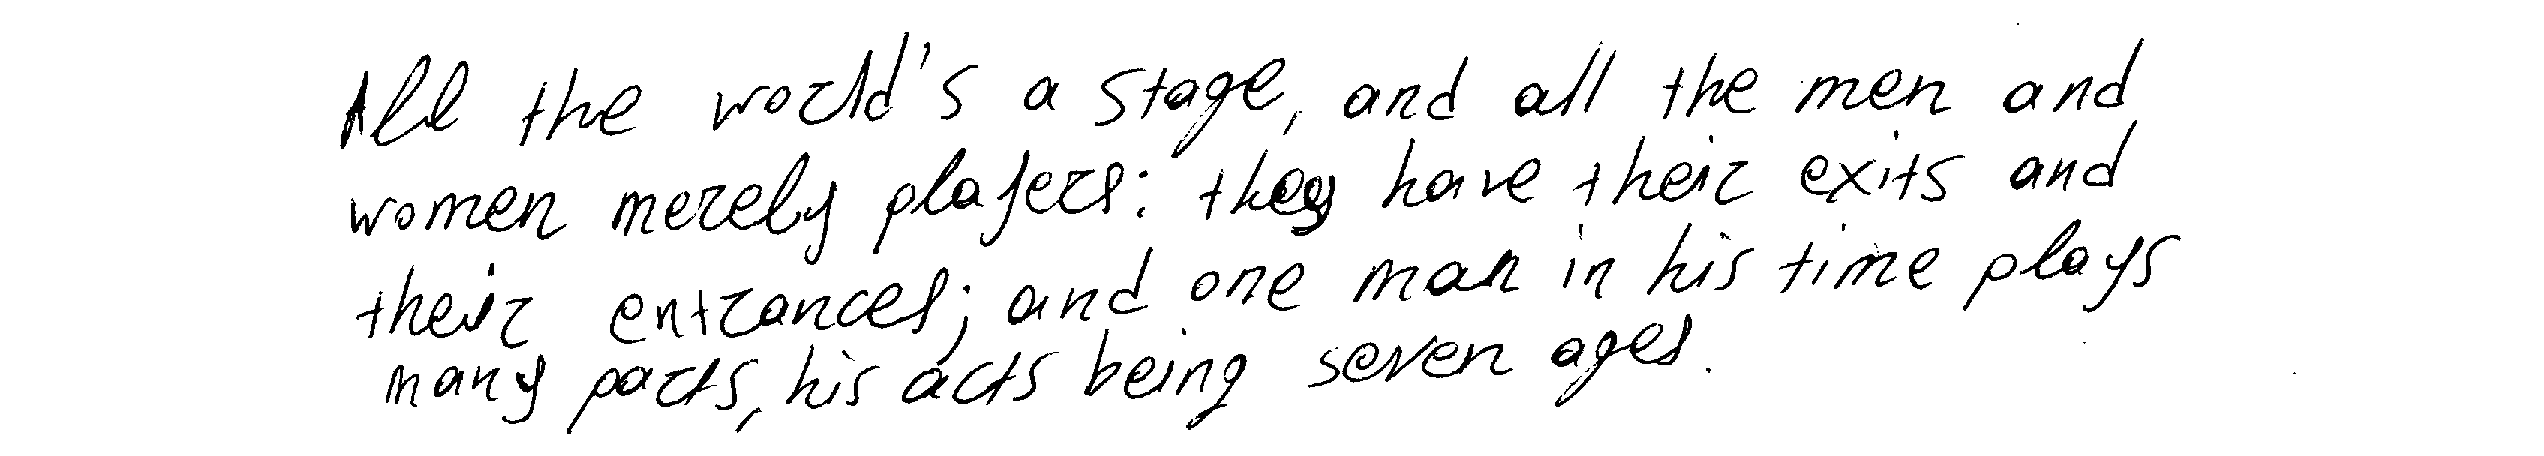 All the world's a stage, and all the men and
women merely players: they have their exits and
their entrances; and one man in his time plays
many parts, his acts being seven ages.